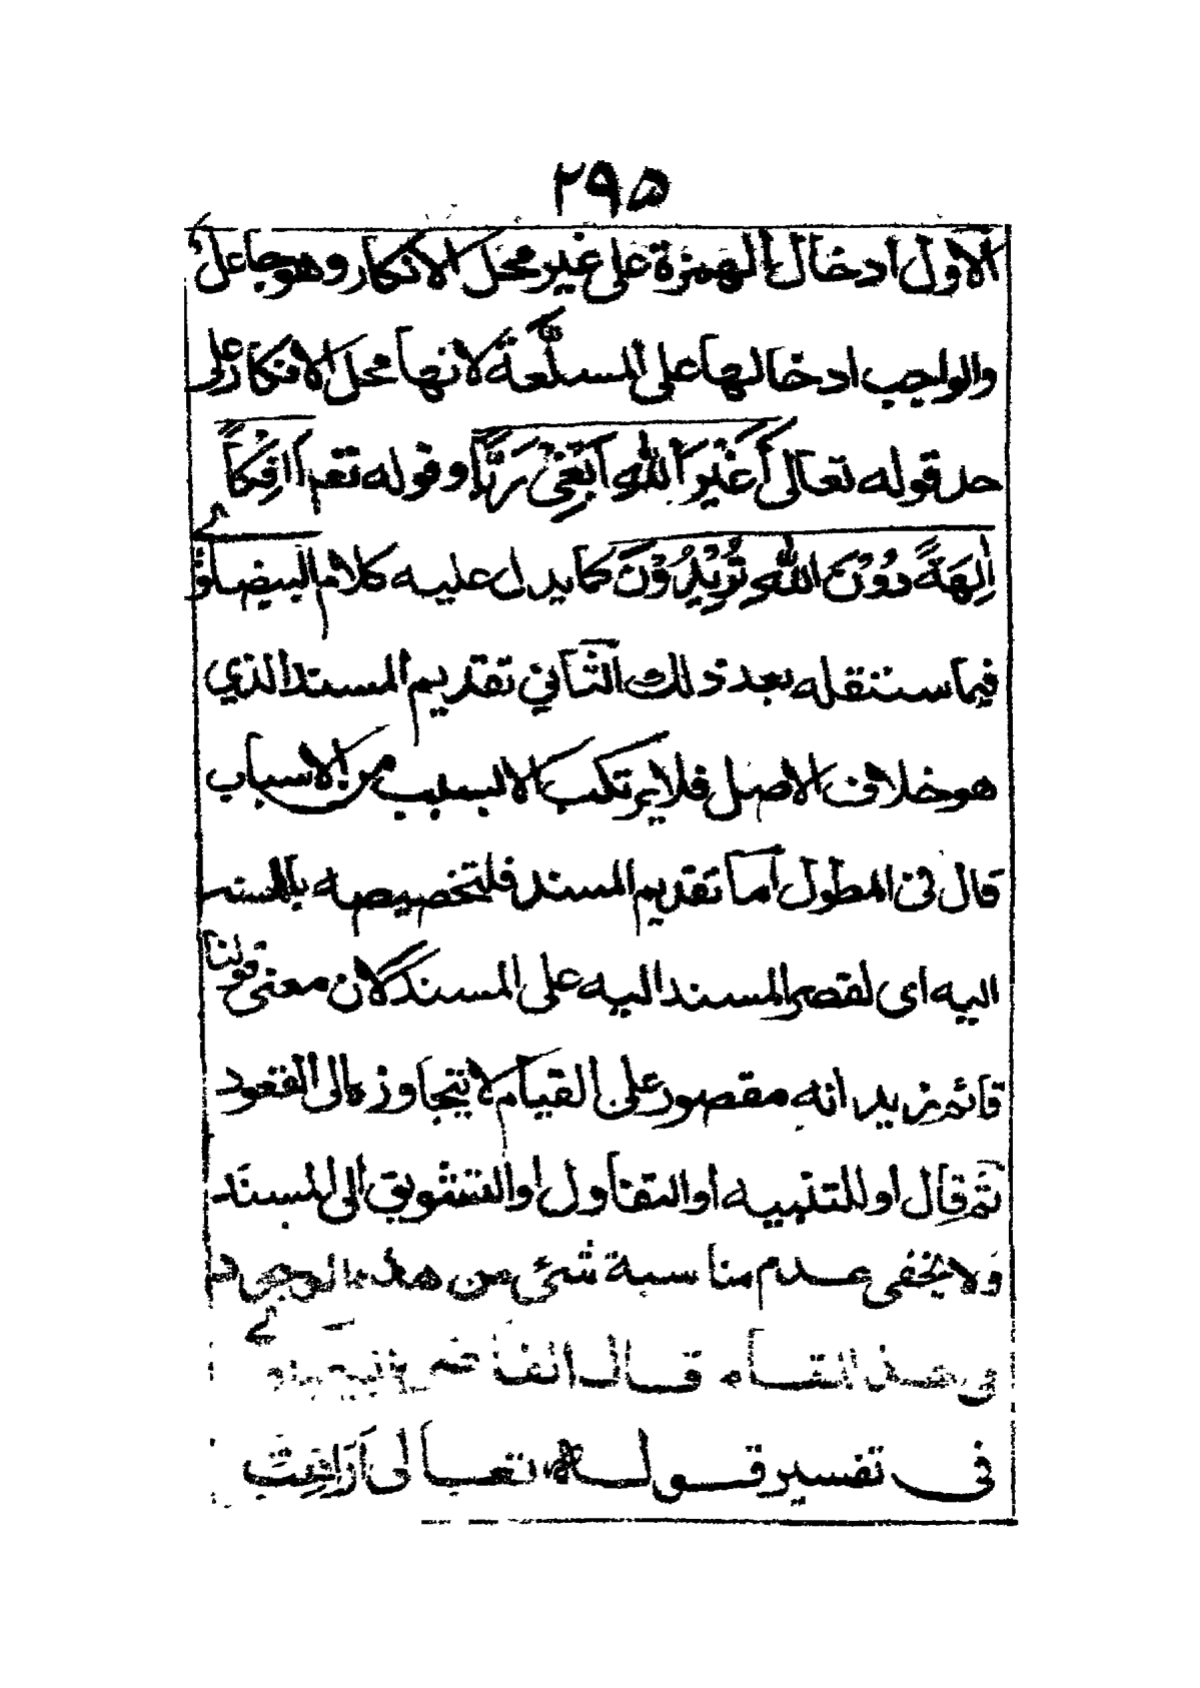 ۲۹۵
الاول ادخال الهمزة على غير محل الانكار وهو جاعل
والواجب ادخالها على المسلَّعة لانها محل الانكار على
حد قوله تعالى أَغَيْرَ اللّٰهِ اَبْغِيْ رَبًّا وقوله تعم أَاِفْكاً
اٰلِهَةً دُوْنَ اللّٰهِ تُرِيْدُوْنَ كما يدل عليه كلام البيضاوي
فيما سننقله بعد ذلك الثاني تقديم المسند الذي
هو خلاف الاصل فلا يرتكب الا لسبب من الاسباب
قال في المطول اما تقديم المسند فلتخصيصه بالمسند
اليه اى لقصر المسند اليه على المسند لان معنى قولنا
قائم زيد انه مقصور على القيام لا يتجاوزه الى القعود
ثم قال او للتنبيه او التفاول او التشويق الى المسند
ولا يخفى عدم مناسبة شئ من هذه الوجوه
في هذا المقام قال الفاضل
في تفسير قوله تعالى اَرَاَيْتَ